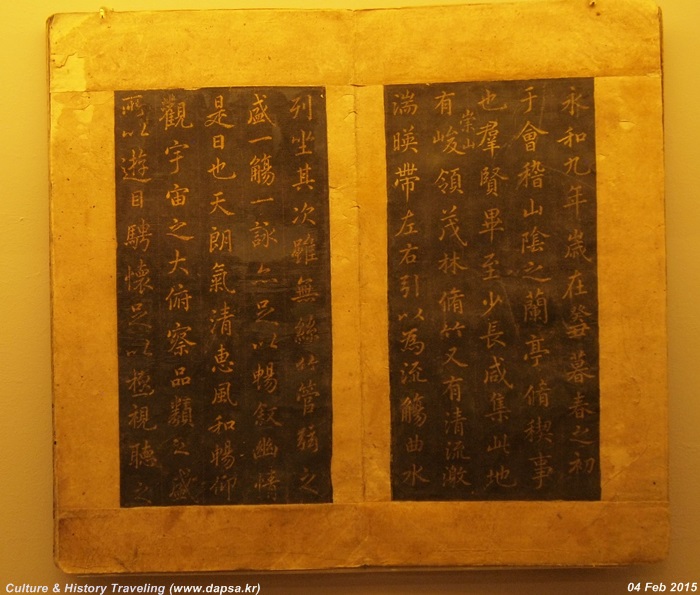 永和九年歲在癸丑暮春之初
于會稽山陰之蘭亭脩稧事
也羣賢畢至少長咸集此地
有崇山峻領茂林脩竹又有清流激
湍暎帶左右引以為流觴曲水
列坐其次雖無絲竹管弦之
盛一觴一詠亦足以暢敘幽情
是日也天朗氣清惠風和暢仰
觀宇宙之大俯察品類之盛
所以遊目騁懷足以極視聽之
Culture & History Traveling (www.dapsa.kr)
04 Feb 2015